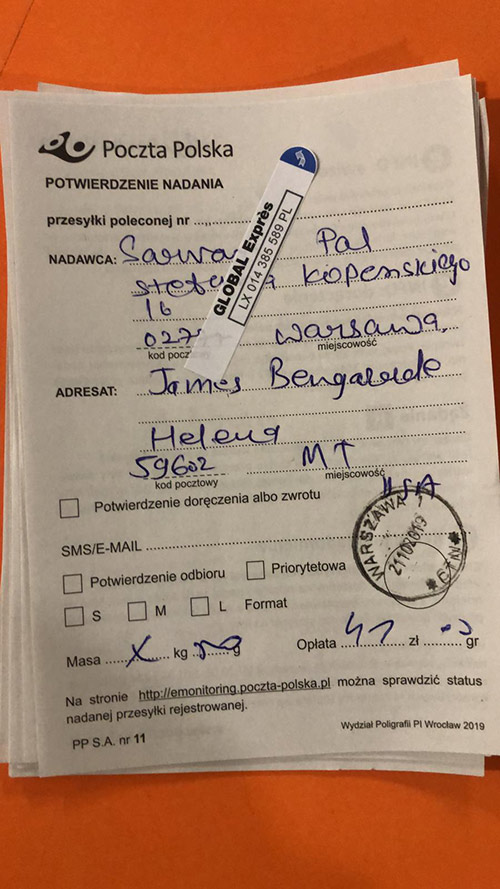 Poczta Polska
POTWIERDZENIE NADANIA
przesyłki poleconej nr
GLOBAL Exprès
LX 014 385 589 PL
NADAWCA: Sarwa Pal
Kopenskiego
16
027 Warsawa
kod pocztowy miejscowość
ADRESAT: James Bengalede
Helena
59602 MT
kod pocztowy miejscowość
USA
Potwierdzenie doręczenia albo zwrotu
WARSZAWA 1
21102019
SMS/E-MAIL
Potwierdzenie odbioru Priorytetowa
S M L Format
Masa X kg g Opłata 41 zł gr
Na stronie http://emonitoring.poczta-polska.pl można sprawdzić status
nadanej przesyłki rejestrowanej.
Wydział Poligrafii PI Wrocław 2019
PP S.A. nr 11